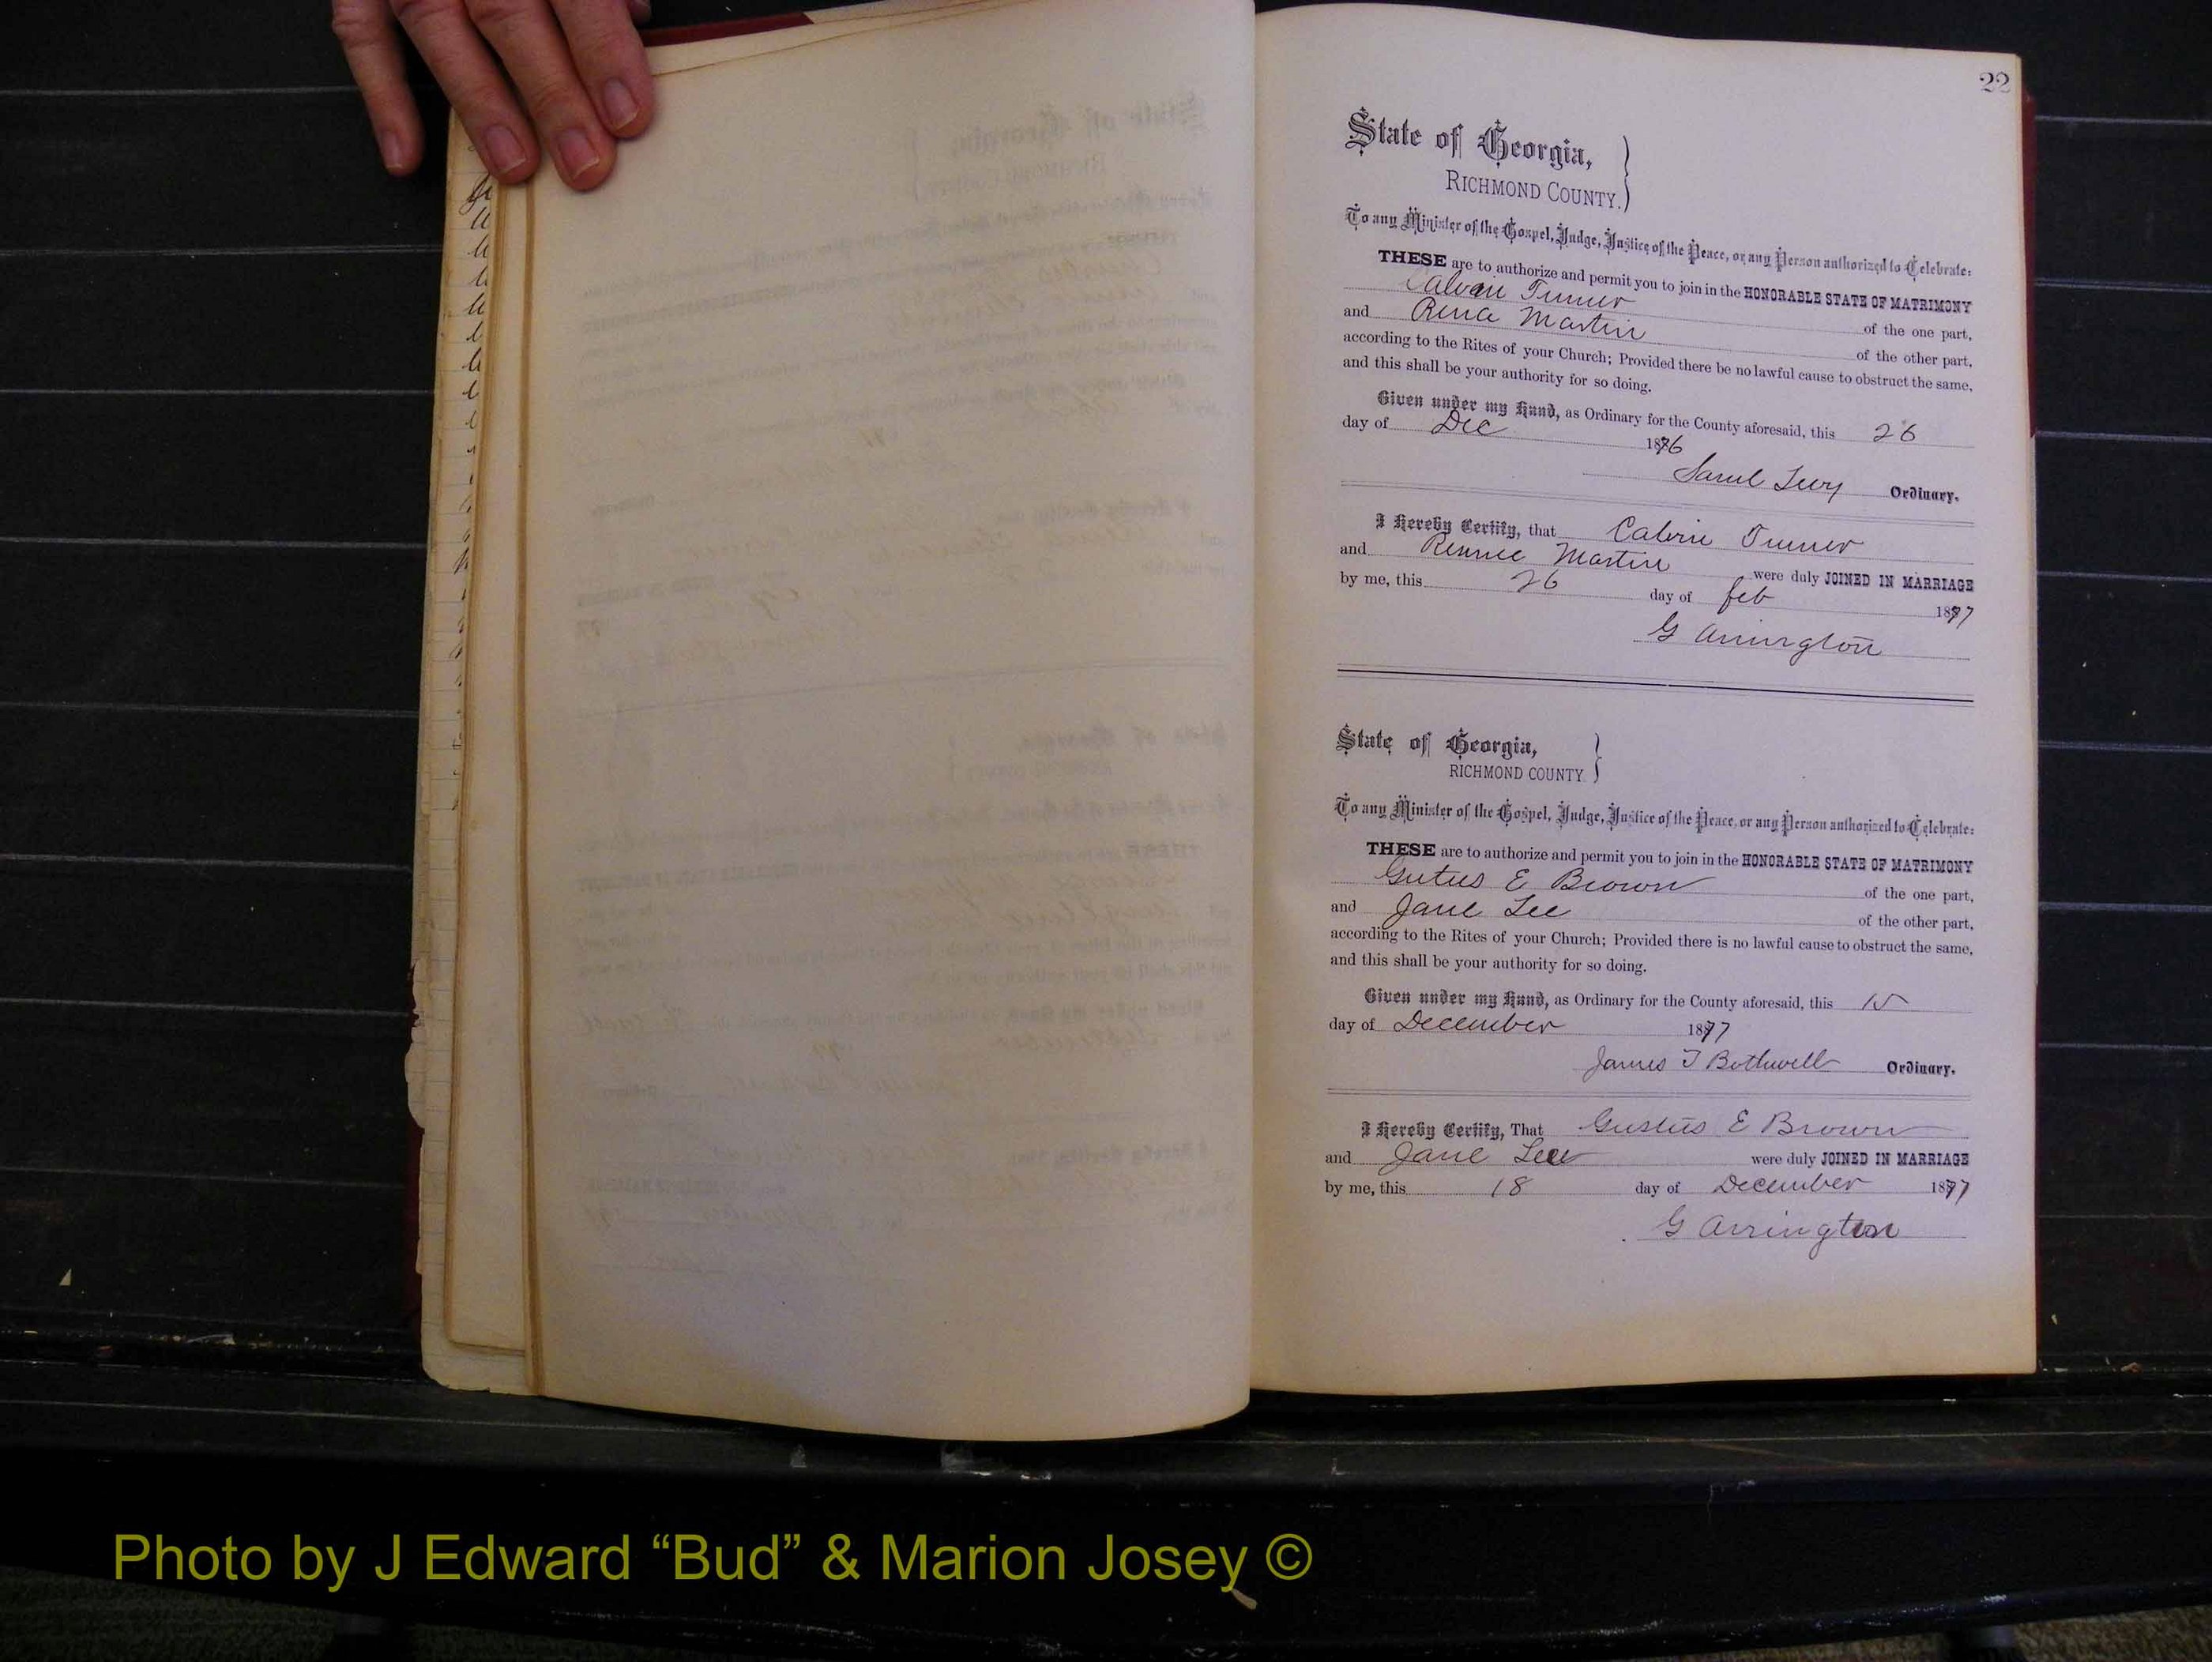 22
State of Georgia,
RICHMOND COUNTY.
To any Minister of the Gospel, Judge, Justice of the Peace, or any Person authorized to Celebrate:
THESE are to authorize and permit you to join in the HONORABLE STATE OF MATRIMONY
Calvin Turner of the one part,
and Rena Martin of the other part,
according to the Rites of your Church; Provided there be no lawful cause to obstruct the same,
and this shall be your authority for so doing.
Given under my Hand, as Ordinary for the County aforesaid, this 26
day of Dec 1876
Saml Levy Ordinary.
I Hereby Certify, that Calvin Turner
and Rennie Martin were duly JOINED IN MARRIAGE
by me, this 26 day of feb 1877
G Arrington
State of Georgia,
RICHMOND COUNTY
To any Minister of the Gospel, Judge, Justice of the Peace, or any Person authorized to Celebrate:
THESE are to authorize and permit you to join in the HONORABLE STATE OF MATRIMONY
Gutus E Brown of the one part,
and Jane Lee of the other part,
according to the Rites of your Church; Provided there is no lawful cause to obstruct the same,
and this shall be your authority for so doing.
Given under my Hand, as Ordinary for the County aforesaid, this 15
day of December 1877
James T Bothwell Ordinary.
I Hereby Certify, That Gustus E Brown
and Jane Lee were duly JOINED IN MARRIAGE
by me, this 18 day of December 1877
G Arrington
Photo by J Edward “Bud” & Marion Josey ©